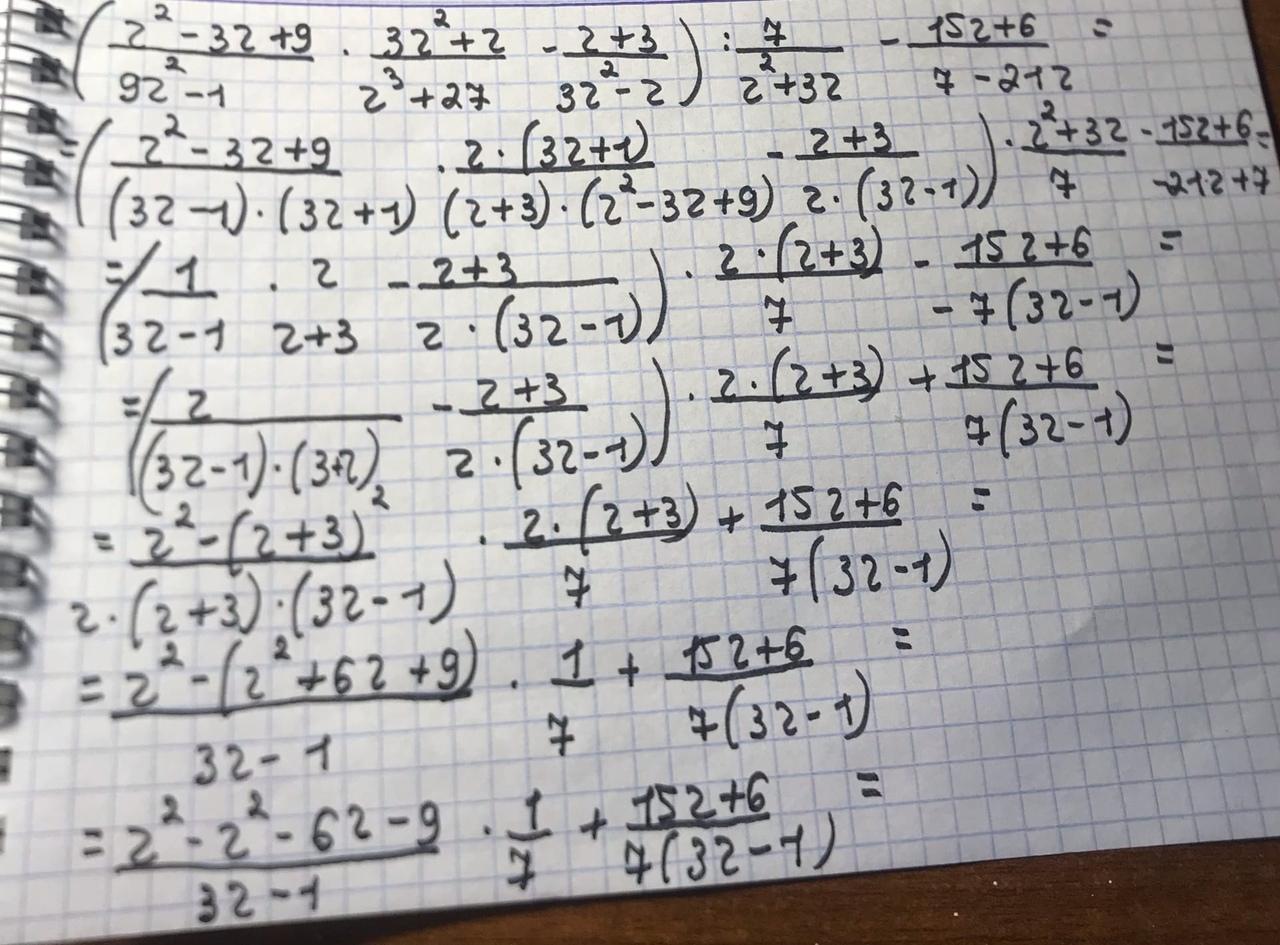 ( (z² - 3z + 9)/(9z² - 1) · (3z² + z)/(z³ + 27) - (z + 3)/(3z² - z) ) : 7/(z² + 3z) - (15z + 6)/(7 - 21z) =
= ( (z² - 3z + 9)/((3z - 1)·(3z + 1)) · (z·(3z + 1))/((z + 3)·(z² - 3z + 9)) - (z + 3)/(z·(3z - 1)) ) · (z² + 3z)/7 - (15z + 6)/(-21z + 7) =
= ( 1/(3z - 1) · z/(z + 3) - (z + 3)/(z·(3z - 1)) ) · (z·(z + 3))/7 - (15z + 6)/(-7(3z - 1)) =
= ( z/((3z - 1)·(3+z)) - (z + 3)/(z·(3z - 1)) ) · (z·(z + 3))/7 + (15z + 6)/(7(3z - 1)) =
= (z² - (z + 3)²)/(z·(z + 3)·(3z - 1)) · (z·(z + 3))/7 + (15z + 6)/(7(3z - 1)) =
= (z² - (z² + 6z + 9))/(3z - 1) · 1/7 + (15z + 6)/(7(3z - 1)) =
= (z² - z² - 6z - 9)/(3z - 1) · 1/7 + (15z + 6)/(7(3z - 1)) =